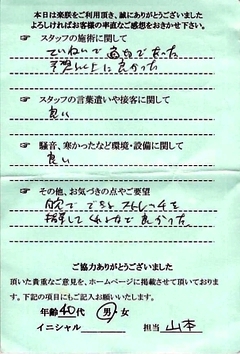 本日は楽膝をご利用頂き、誠にありがとうございました
よろしければお客様の率直なご感想をおきかせ下さい。
☞ スタッフの施術に関して
ていねいで適切であった
予想以上に良かった
☞ スタッフの言葉遣いや接客に関して
良い
☞ 騒音、寒かったなど環境・設備に関して
良い
☞ その他、お気づきの点やご要望
自宅でできるストレッチを
指導してくれたので良かった。
ご協力ありがとうございました
頂いた貴重なご意見を、ホームページに掲載させて頂いておりま
す。下記の項目にもご記入お願いいたします。
年齢40代 男 女
イニシャル 担当 山本